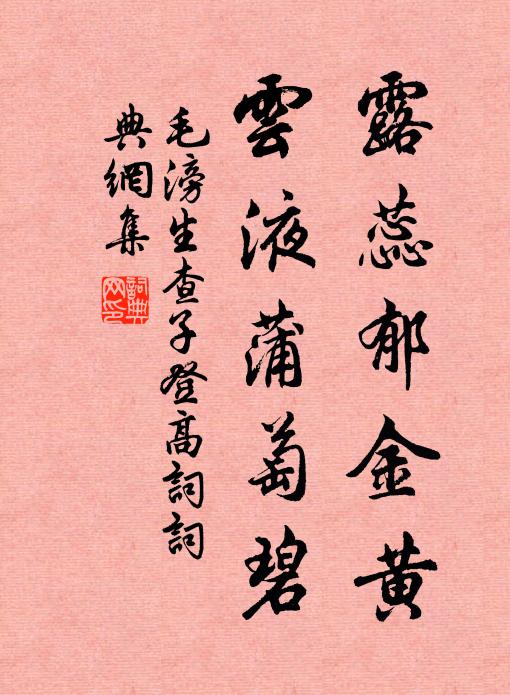 露蕊郁金黄
雲液蒲萄碧
毛滂生查子登高詞詞
典網集
詞典
网印